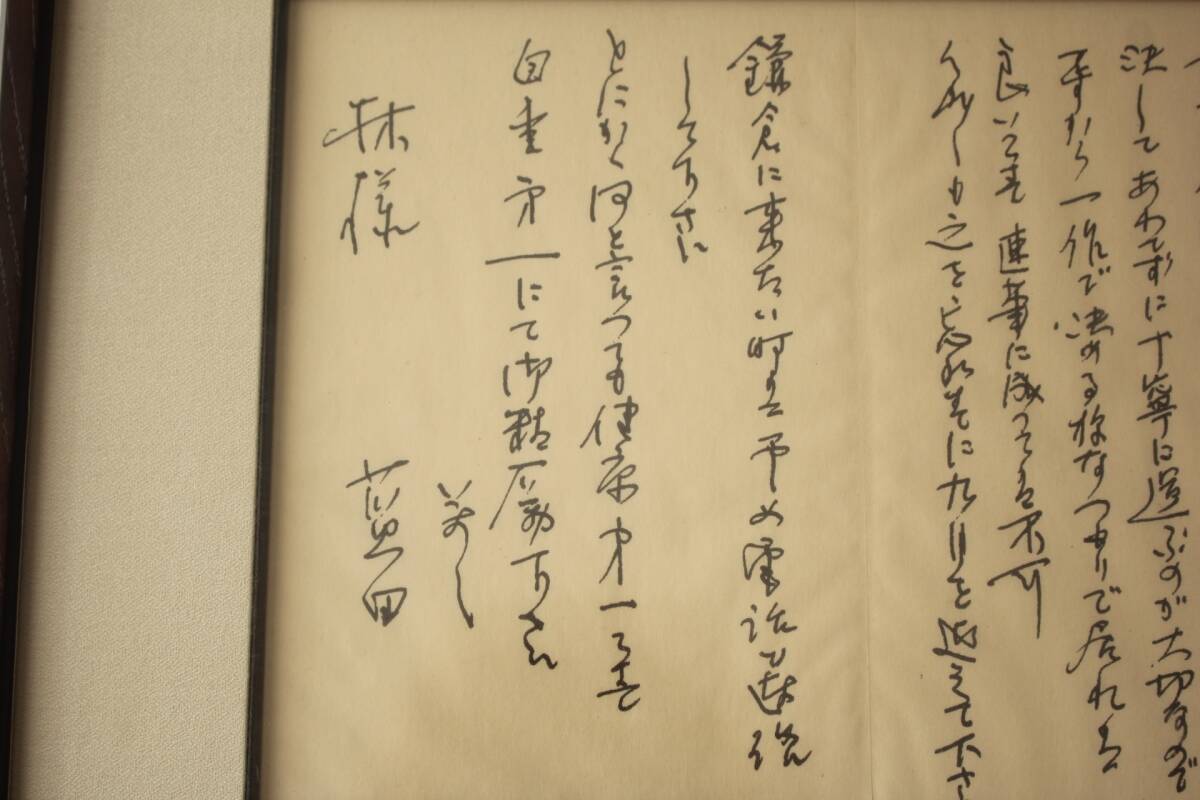 決してあわてずに丁寧に選ぶのが大切なので
すから一作で決める様なつもりで居れば
良いのです 連筆に成っては不可
くれぐれも之を忘れずに九月を迎えて下さ
鎌倉に来たい時は予め電話で連絡
して下さい
とにかく何と言っても健康第一です
自重第一にて御精励下され
草々
林様
黄田